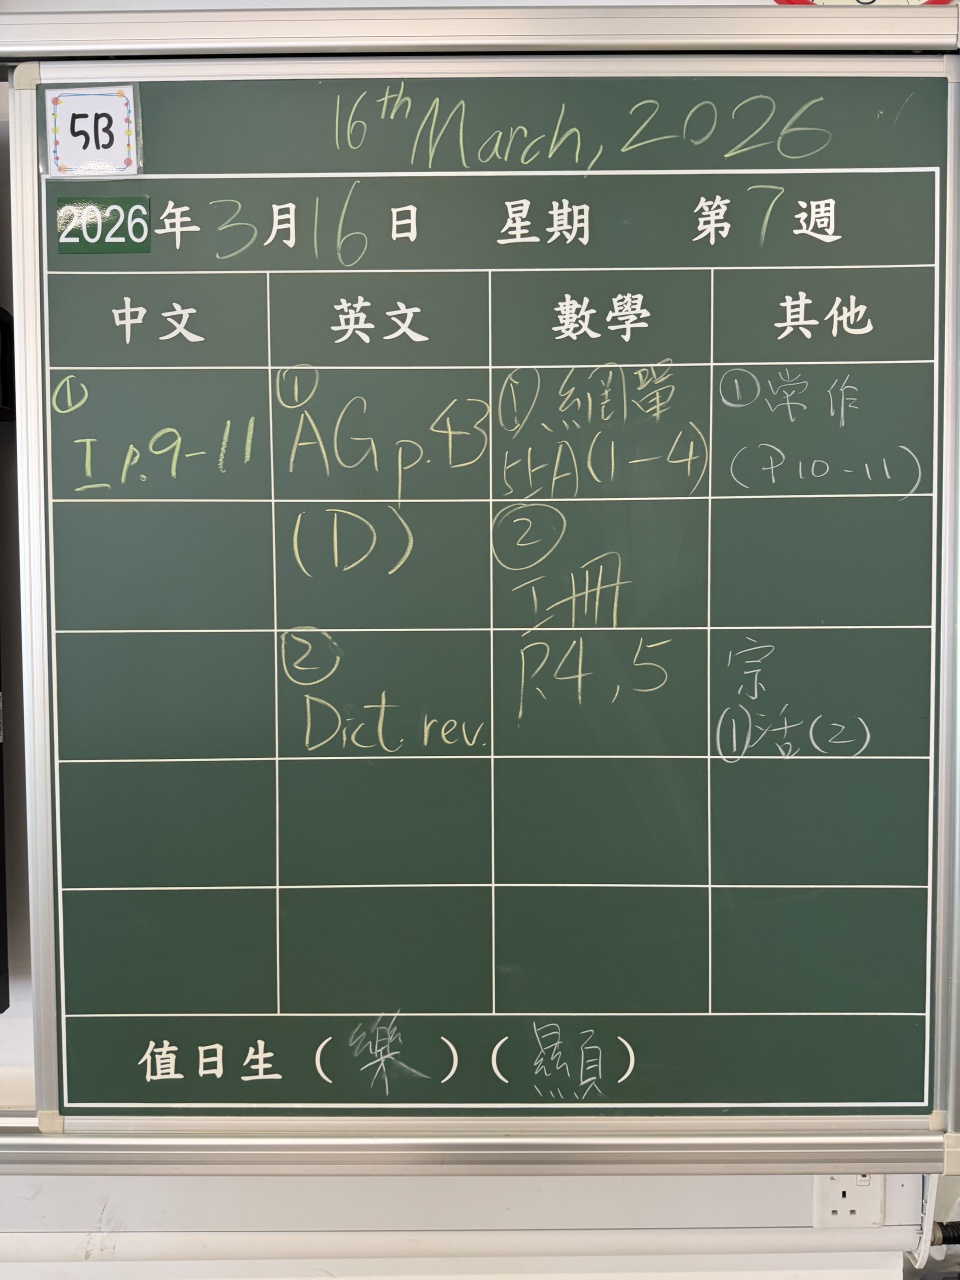 5B
16th March, 2026
2026年3月16日 星期 第7週
中文 英文 數學 其他
① I p.9-11
① AG p.43
(D)
② Dict. rev.
① 網單
5上A(1-4)
②
工冊
P.4,5
① 常作
(P10-11)
宗
① 活(2)
值日生(樂)(顯)